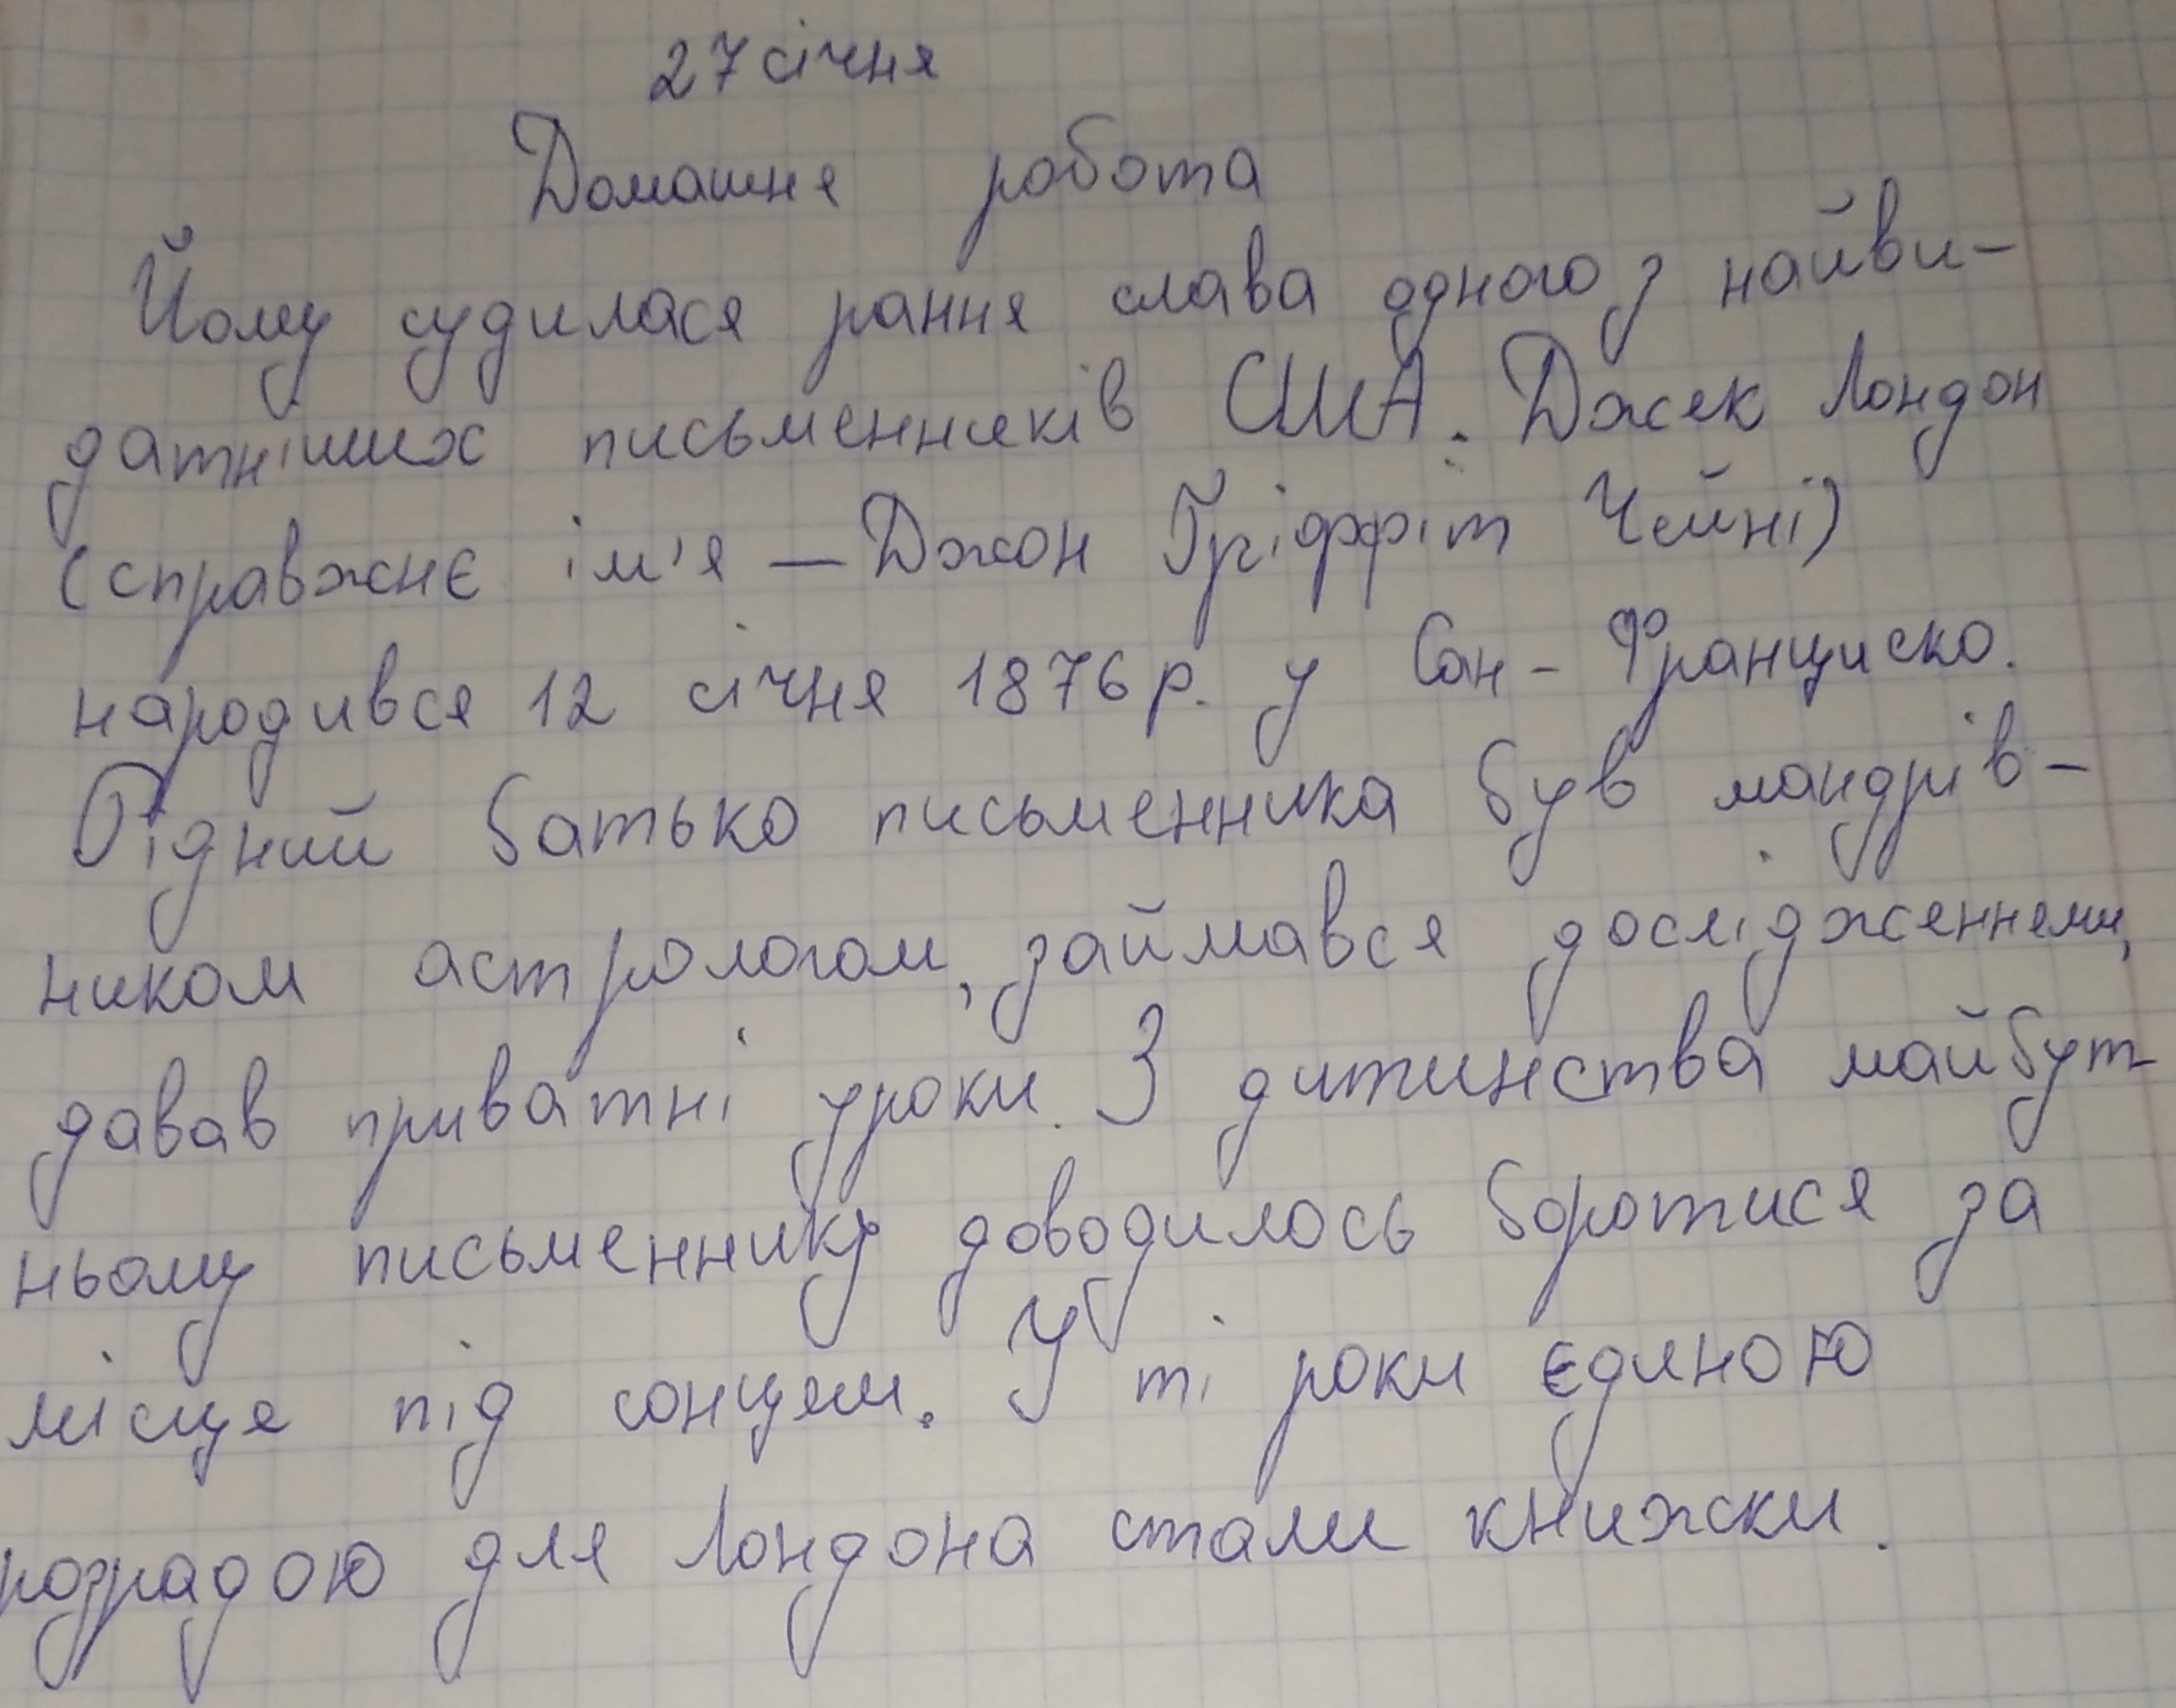 27 січня
Домашня робота
Йому судилася рання слава одного з найви-
датніших письменників США. Джек Лондон
(справжнє ім'я — Джон Гріффіт Чейні)
народився 12 січня 1876 р. у Сан-Франциско.
Рідний батько письменника був мандрів-
ником астрологом, займався дослідженнями,
давав приватні уроки. З дитинства майбут-
ньому письменнику доводилось боротися за
місце під сонцем. У ті роки єдиною
розрадою для Лондона стали книжки.